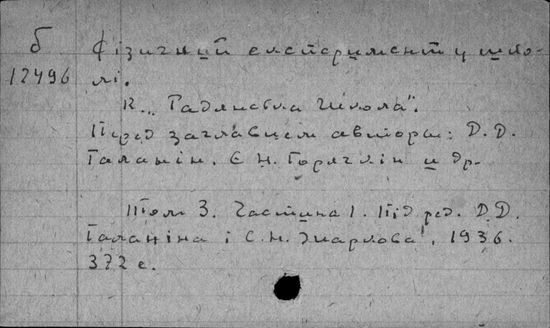 б
12496
Фізичний експеримент у шко-
лі.
К., "Радянська школа".
Перед заглавием авторы: Д.Д.
Галанін, Є.Н. Горячкін и др.
Том 3. Частина 1. Під ред. Д.Д.
Галаніна і С.Н. Жаркова, 1936.
372 с.